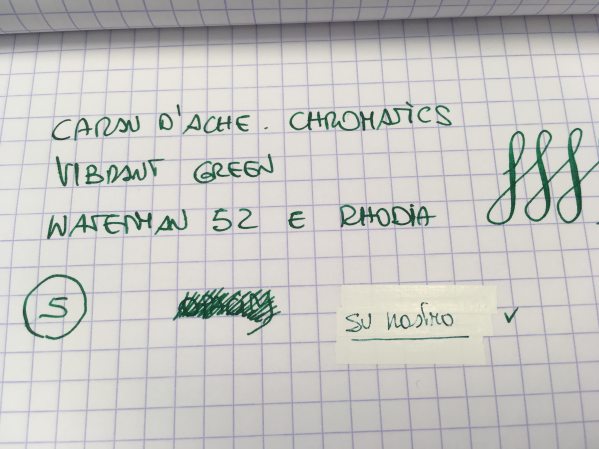 CARAN D'ACHE. CHROMATICS
VIBRANT GREEN
WATERMAN 52 E RHODIA
fff
5
su nastro ✓